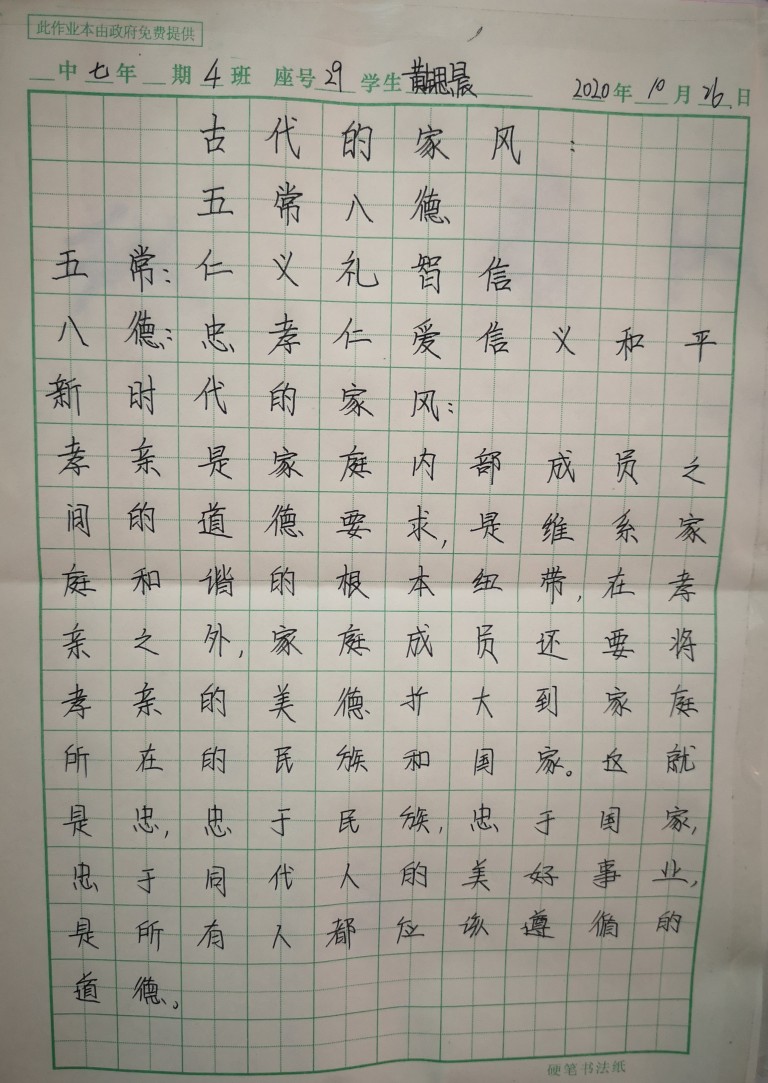 此作业本由政府免费提供
中七年 期4班 座号29 学生黄思晨 2020年10月26日
古代的家风:
五常八德
五常:仁义礼智信
八德:忠孝仁爱信义和平
新时代的家风:
孝亲是家庭内部成员之
间的道德要求,是维系家
庭和谐的根本纽带,在孝
亲之外,家庭成员还要将
孝亲的美德扩大到家庭
所在的民族和国家。这就
是忠,忠于民族,忠于国家,
忠于同代人的美好事业,
是所有人都应该遵循的
道德。
硬笔书法纸